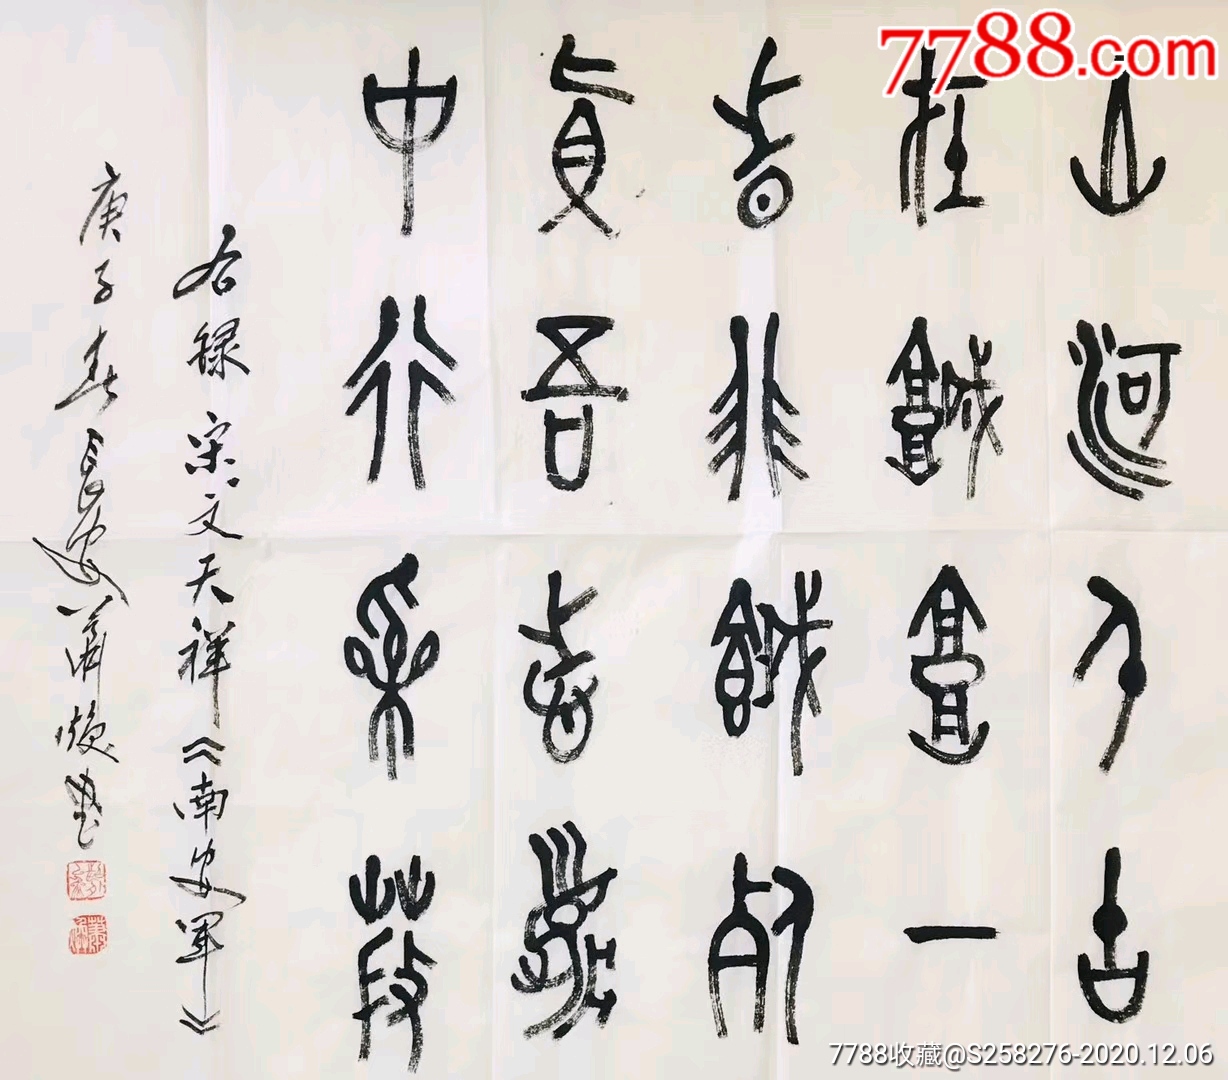 7788.com
山河千古
在城郭一
時非餓死
真吾志夢
中行采薇
右録宋文天祥《南安軍》
庚子春長安蕭
7788收藏@S258276-2020.12.06